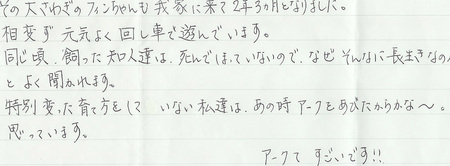 その大さわぎのフィンちゃんも我家に来て2年3ヵ月となりました。
相変ず元気よく回し車で遊んでいます。
同じ頃、飼った知人達は、死んでしまっていないので、なぜそんなに長生きなの
とよく聞かれます。
特別変った育て方をして いない私達は、あの時アークをあびたからかな〜。
思っています。
アークて すごいです!!